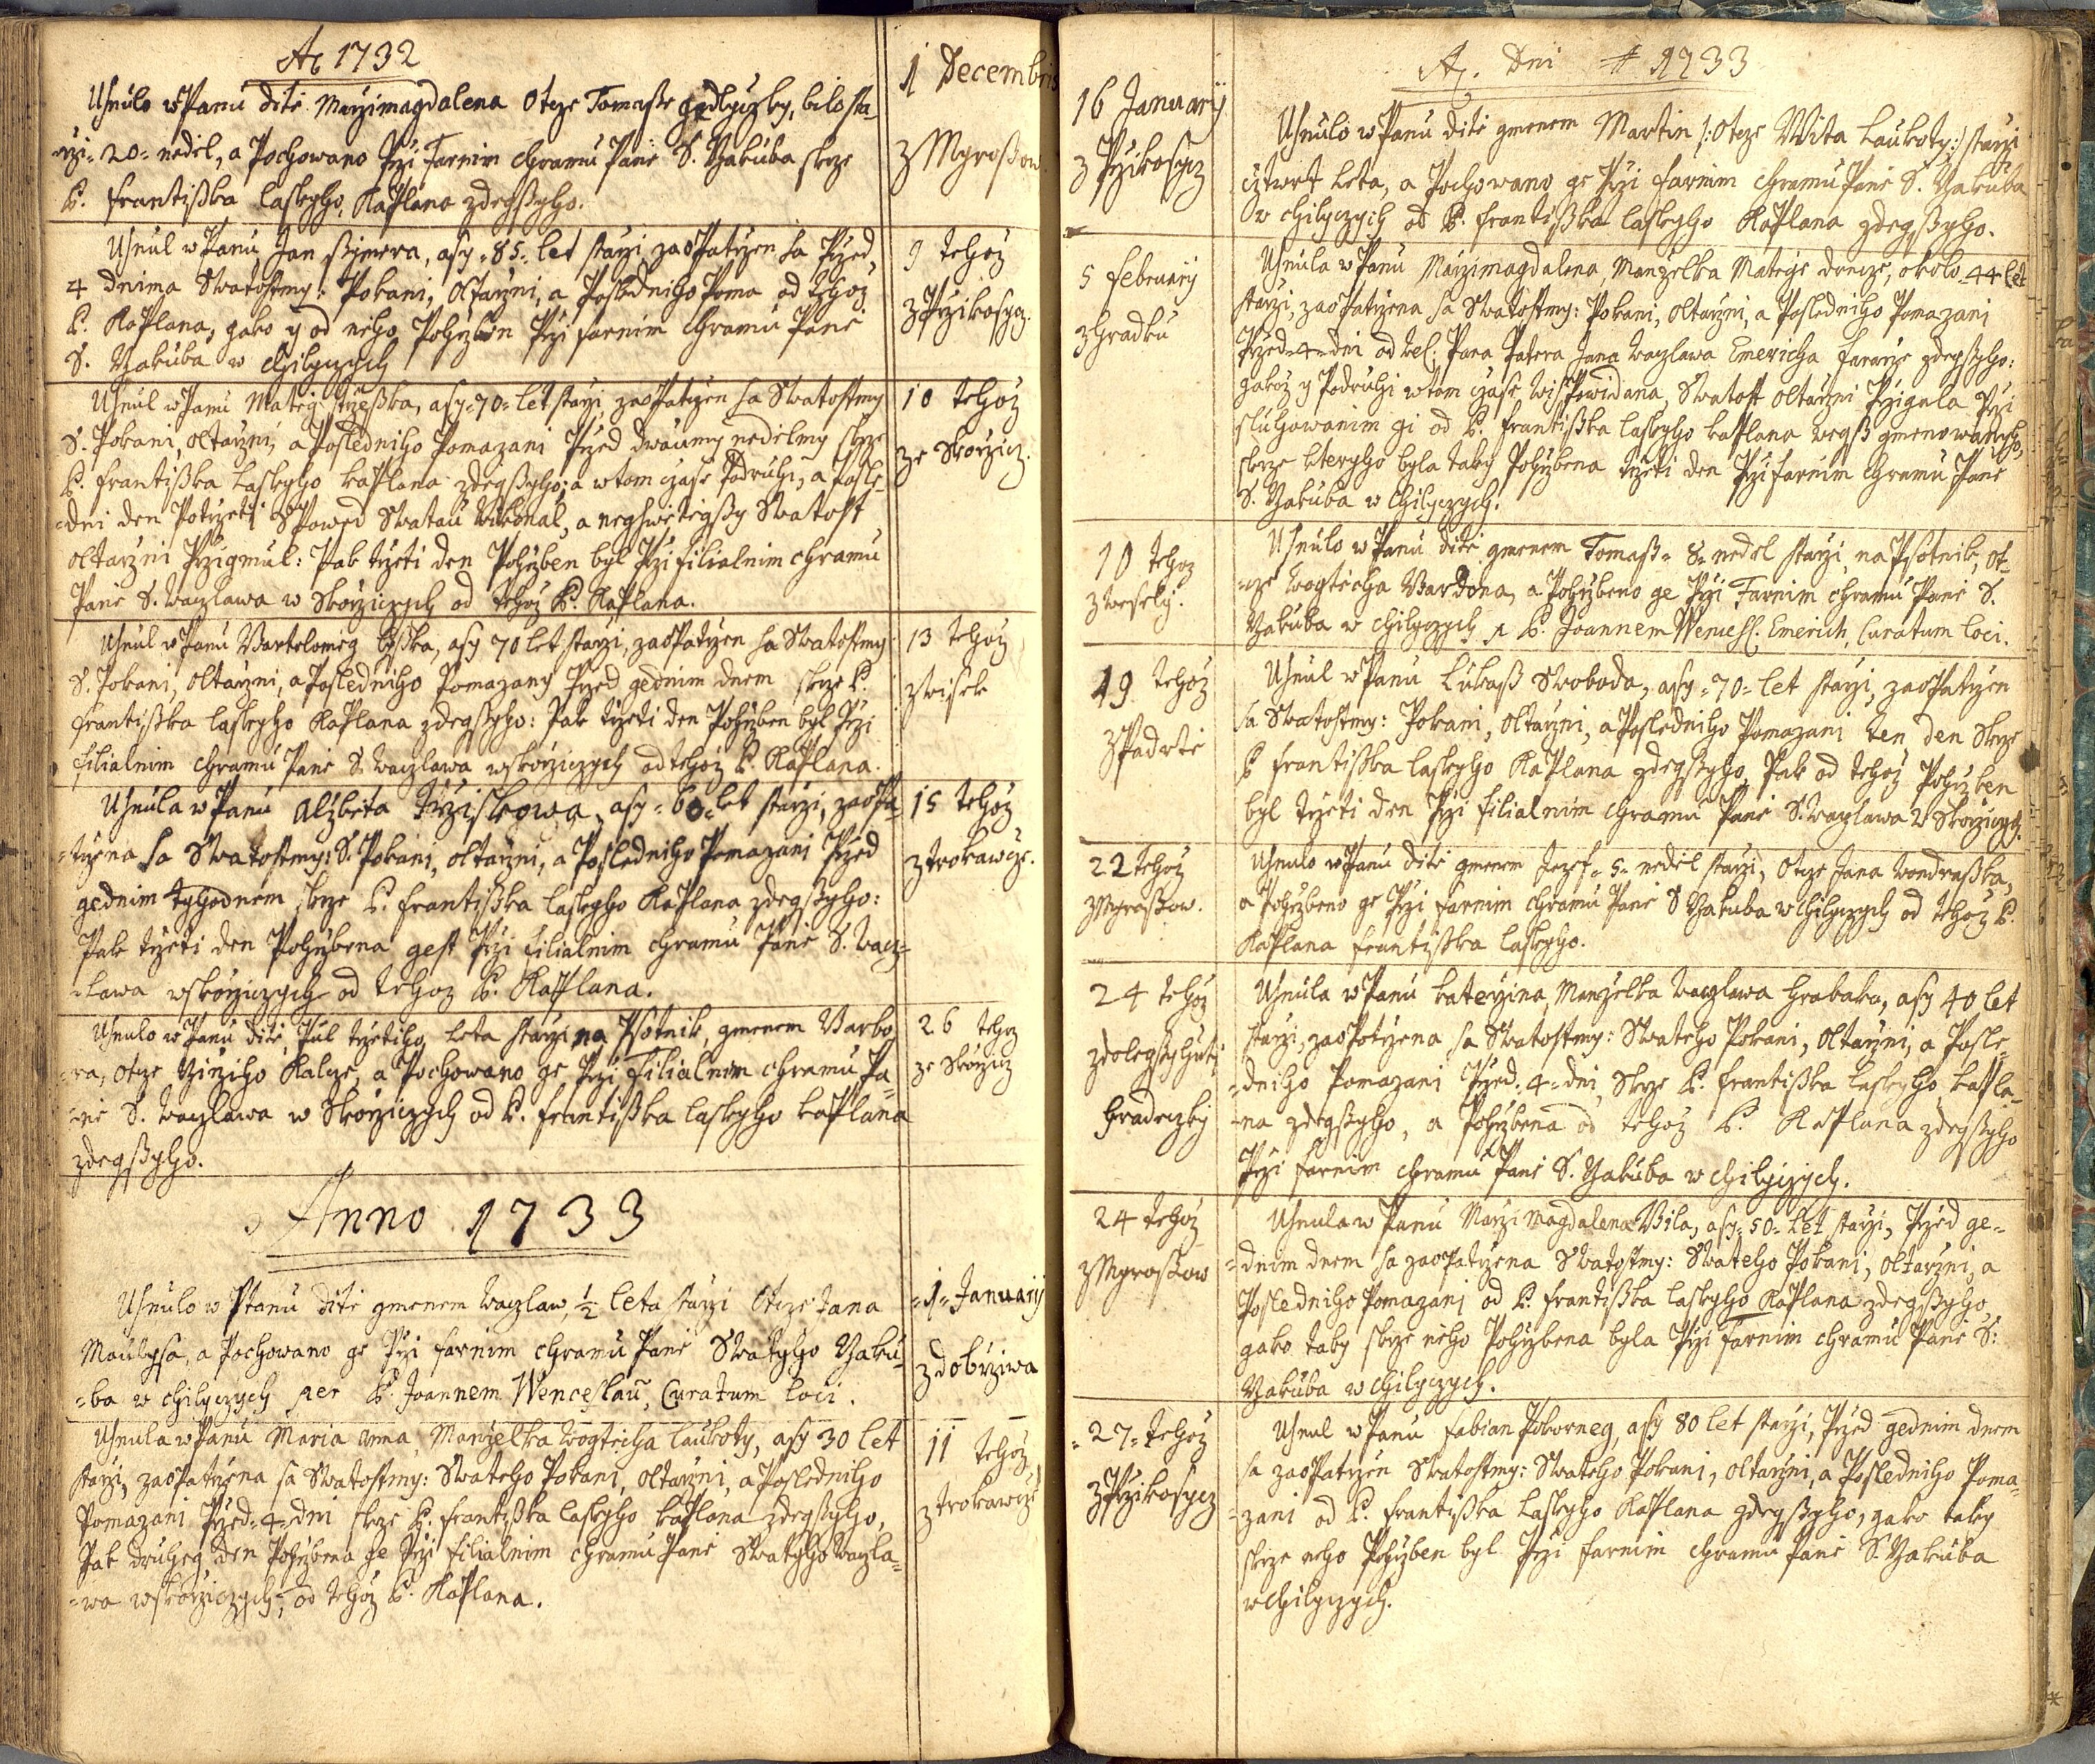 Aõ 1732
Usnulo w Panu ditě Maržimagdalena Otcze Tomasse Jedlyczky, bilo sta-
rži = 20 = neděl, a Pochowano Prži Farnim chramu Paně S. Yakuba skrze
P. Frantisska Laskyho, Kaplana zdegssyho.
1 Decembris
z Myrossow
Usnul w Panu Jan ssymera, asy = 85 = let starži, zaopatržen sa Pržed
4 dnima Swatostmy: Pokani, Oltaržni, a Posledniho Poma od tehož
P. Kaplana, gako y od něho Pohržben Prži Farnim chramu Paně
S. Yakuba w Chilyczych
9 tehož
z Pržikosycz.
Usnul w Panu Matieg ssržesska, asy = 70 = let starži, zaopatržen sa Swatostmy
S. Pokani, Oltaržni, a Posledniho Pomazani Pržed dwaumy nedělmy skrze
P. Frantisska Laskyho Kaplana zdegssyho; a w tom cžase Podruhe, a Posle-
dni den Potržetj Spowed Swatau Wikonal, a neyswětěgssy Swatost
Oltaržni Pržigmul: Pak tržeti den Pohržben byl Prži Filialnim chramu
Paně S. Waczlawa w Skoržiczych od tehož P. Kaplana.
10 tehož
ze Skoržicz.
Usnul w Panu Bartoloměg lysska, asy 70 let starži, zaopatržen sa Swatostmy
S. Pokani, Oltaržni, a Posledniho Pomazany Pržed gednim dnem skrze P.
Frantisska Laskyho Kaplana zdegssyho: Pak tržeti den Pohržben byl Prži
Filialnim chramu Paně S. Waczlawa w Skoržiczych od tehož P. Kaplana.
13 tehož
z Wisek
Usnula w Panu Alžběta Pržiskowa, asy = 60 = let starži, zaopa-
tržena sa Swatostmy: S. Pokani, Oltaržni, a Posledniho Pomazani Pržed
gednim tyhodnem skrze P. Frantisska Laskyho Kaplana zdegssyho:
Pak tržeti den Pohržbena gest Prži Filialnim chramu Paně S. Wacz-
lawa w Skoržiczych od tehož P. Kaplana.
15 tehož
z trokawcze.
Usnulo w Panu ditě, Pul tržetiho leta starži na Psotnik, gmenem Barbo-
ra, Otcze Giržiho Kalcze, a Pochowano ge Prži Filialnim chramu Pa-
ně S. Waczlawa w Skoržiczych od P. Frantisska Laskyho Kaplana
zdegssyho.
26 tehož
ze Skoržicz
Anno 1733
Usnulo w Panu ditě gmenem Waczlaw, ½ leta starži Otcze Jana
Maulysa, a Pochowano ge Prži Farnim chramu Paně Swatyho Yaku-
ba w Chilyczych per P. Joannem Wenceslaũ, Curatum loci.
1 Januarij
z dobržiwa
Usnula w Panu Maria Anna, Manželka Wogtěcha Laukoty, asy 30 let
starži, zaopatržena sa Swatostmy: Swateho Pokani, Oltaržni, a Posledniho
Pomazani Pržed = 4 = dni skrze P. Frantisska Laskyho Kaplana zdegssyho,
Pak druhey den Pohržbena ge Prži Filialnim chramu Paně Swatyho Waczla-
wa w Skoržiczych, od tehož P. Kaplana.
11 tehož
z trokawcze
Aõ. Dni 1733
16 Januarij
z Pržikosycz
Usnulo w Panu ditě gmenem Martin /: Otcze Wita Laukoty :/ starži
cžtwrt leta, a Pochowano ge Prži Farnim chramu Paně S. Yakuba
w Chilyczych od P. Frantisska Laskyho Kaplana zdegssyho.
5 February
z Hradku
Usnula w Panu Maržimagdalena, Manželka Matěge dencze, okolo = 44 let
starži, zaopatržena sa Swatostmy: Pokani, Oltaržni, a Posledniho Pomazani
Pržed = 4 = dni od Wel. Pana Patera Jana Waczlawa Emericha Fararže zdegssyho:
gakož y Podruhi w tom cžase, wispowidana, Swatost Oltaržni Pržigala Prži
sluhowanim gi od P. Frantisska Laskyho Kaplana wegss gmenowaneho,
skrze kteryho byla taky Pohržbena tržeti den Prži Farnim chramu Paně
S. Yakuba w Chilyczych.
10 tehož
z Wesely.
Usnulo w Panu ditě gmenem Tomass = 8 = neděl starži, na Psotnik, Ot-
cze Wogtěcha Bardona, a Pohržbeno ge Prži Farnim chramu Paně S.
Yakuba w Chilyczych p P. Joannem Wencesl. Emerich, Curatum loci.
19 tehož
z Padrtě
Usnul w Panu Lukass Swoboda, asy = 70 = let starži, zaopatržen
sa Swatostmy: Pokani, Oltaržni, a Posledniho Pomazani ten den skrze
P Frantisska Laskyho Kaplana zdegssyho, Pak od tehož Pohržben
byl tržeti den Prži Filialnim chramu Paně S. Waczlawa w Skoržiczych.
22 tehož
z Myrossow.
Usnulo w Panu ditě gmenem Jozef = 5 = neděl starži, Otcze Jana Wondrasska,
a Pohržbeno ge Prži Farnim chramu Paně S Yakuba w Chilyczych od tehož P.
Kaplana Frantisska Laskyho.
24 tehož
z dolegssy huti
Hradeczky
Usnula w Panu Kateržina, Manželka Waczlawa Hrabaka, asy 40 let
starži, zaopatržena sa Swatostmy: Swateho Pokani, Oltaržni, a Posle-
dniho Pomazani Pržed = 4 = dni, skrze P. Frantisska Laskyho Kapla-
na zdegssyho, a Pohržbena od tehož P. Kaplana zdegssyho
Prži Farnim chramu Paně S. Yakuba w Chilyczych.
24 tehož
z Myrossow
Usnula w Panu Marži Magdalena Bila, asy = 50 = let starži, Pržed ge-
dnim dnem sa zaopatržena Swatostmy: Swateho Pokani, Oltaržni, a
Posledniho Pomazanj od P. Frantisska Laskyho Kaplana zdegssyho,
gako taky skrze něho Pohržbena byla Prži Farnim chramu Paně S:
Yakuba w Chilyczych.
27 tehož
z Pržikosycz
Usnul w Panu Fabian Pokorneg, asy 80 let starži, Pržed gednim dnem
sa zaopatržen Swatostmy: Swateho Pokani, Oltaržni, a Posledniho Poma-
zani od P. Frantisska Laskyho Kaplana zdegssyho, gako taky
skrze něho Pohržben byl Prži Farnim chramu Paně S. Yakuba
w Chilyczych.